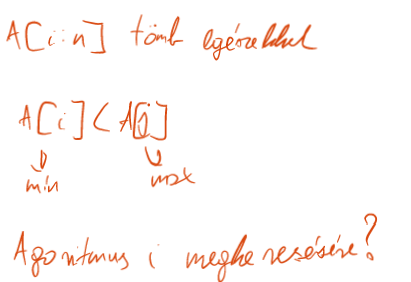 A[i:n] tömb egészekkel
A[i] < A[j]
min max
Agoritmus i megkeresésére?